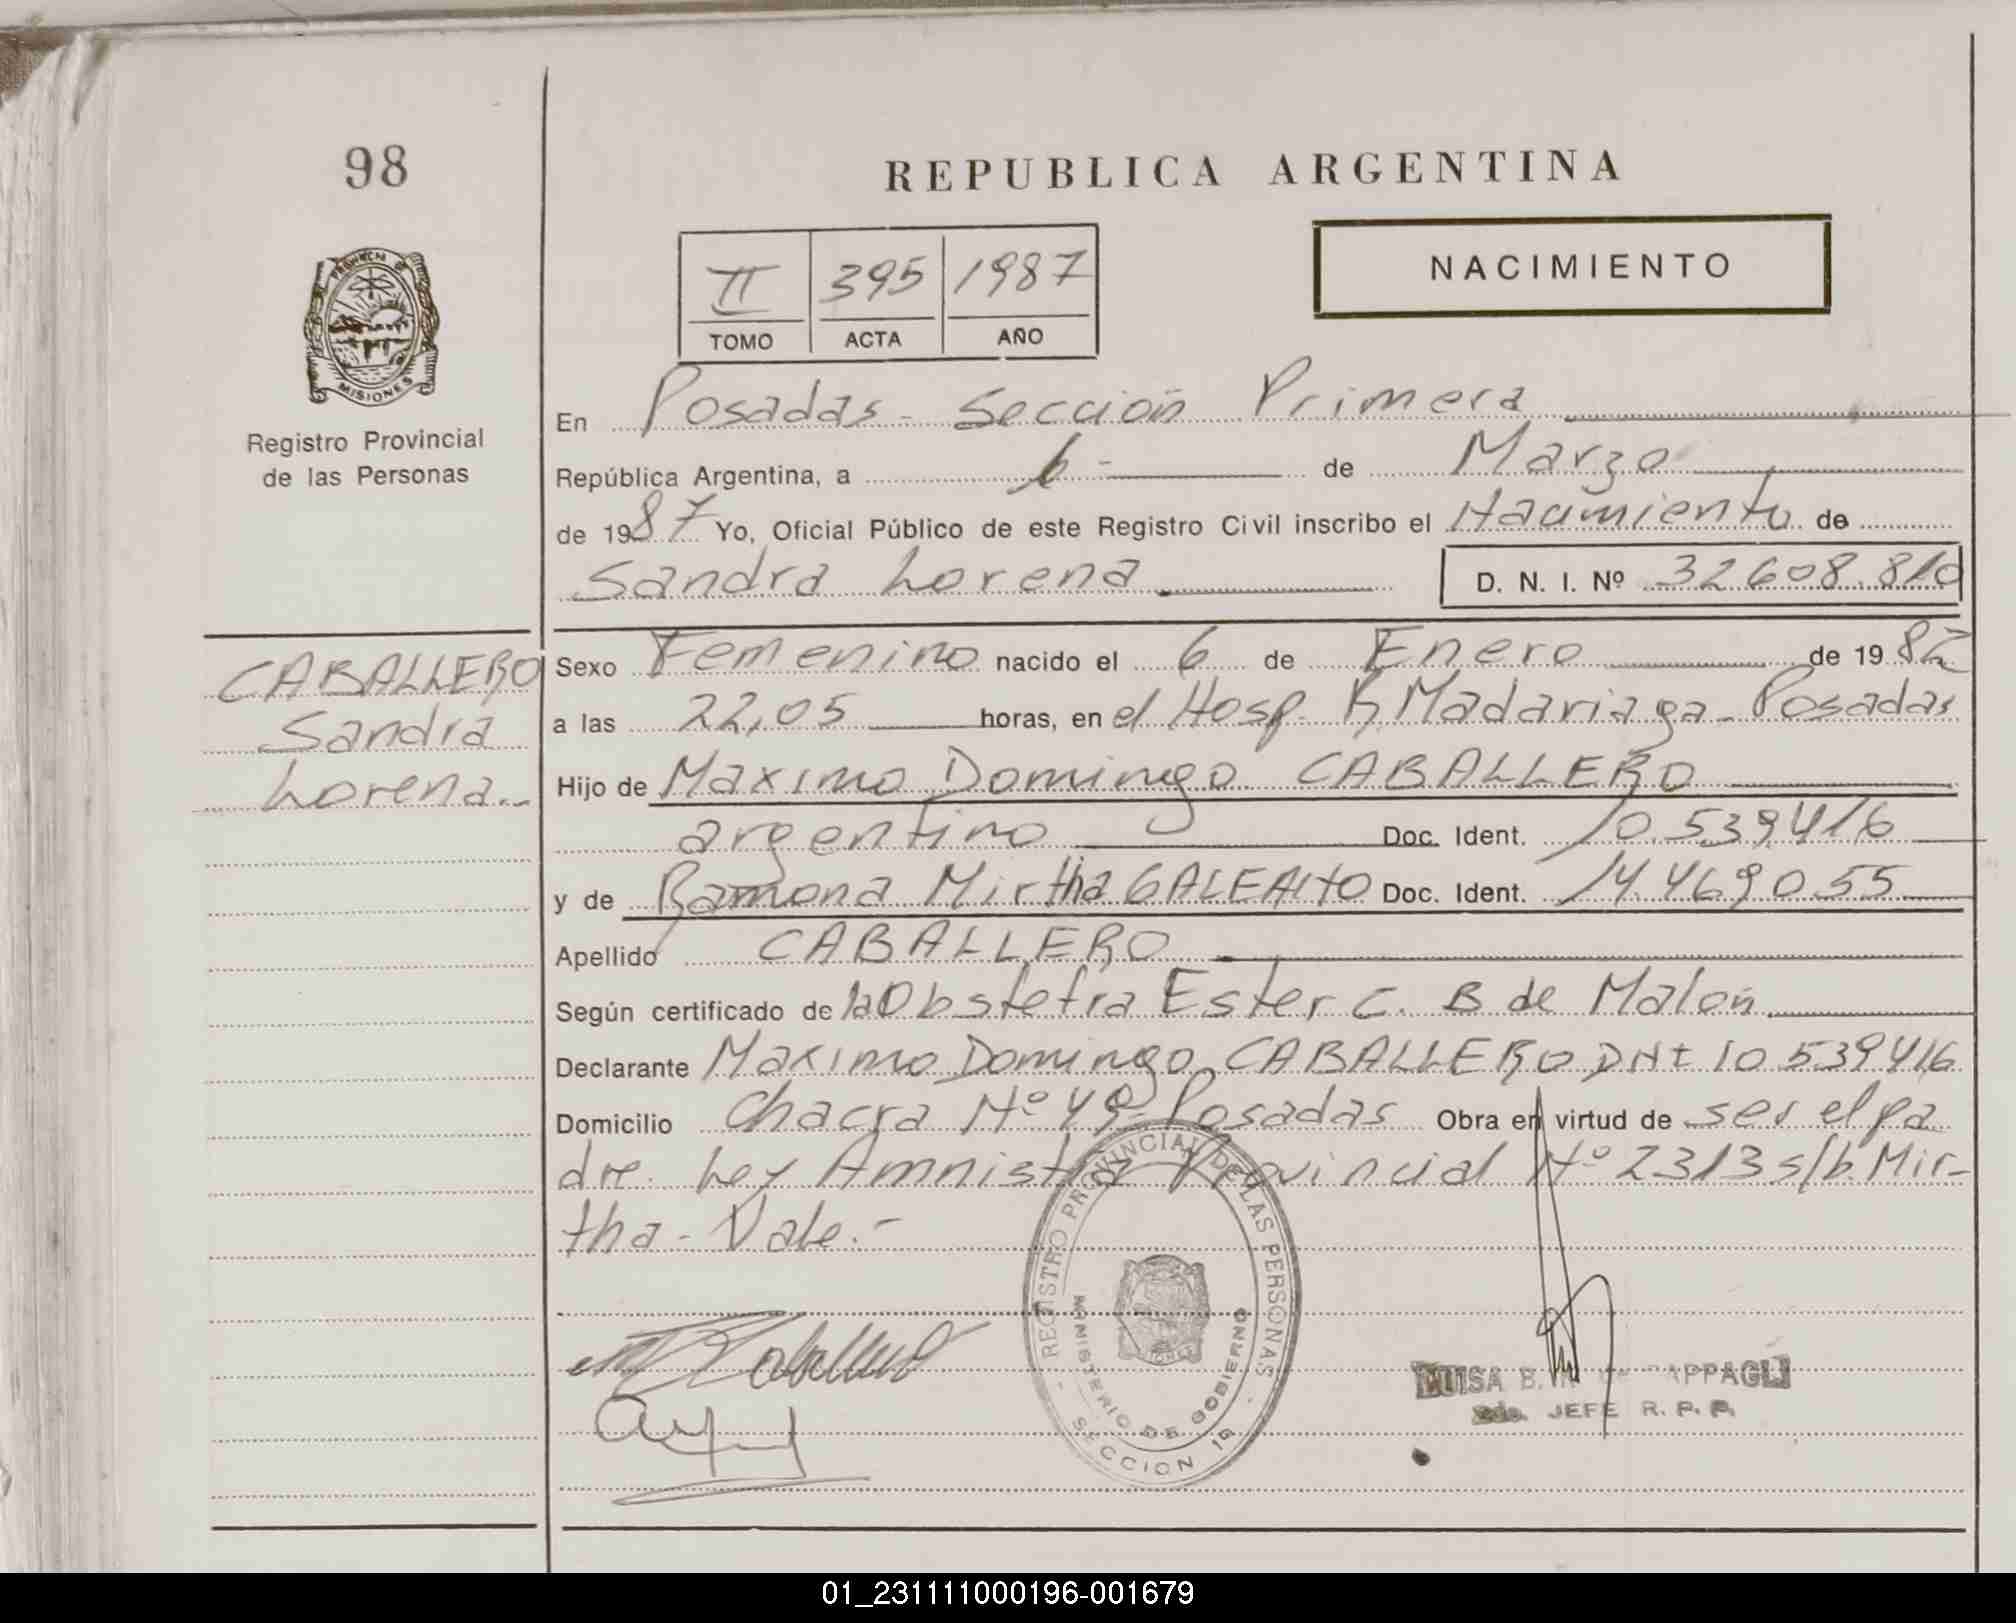 98
REPUBLICA ARGENTINA
NACIMIENTO
II 395 1987
TOMO ACTA AÑO
PROVINCIA DE MISIONES
Registro Provincial
de las Personas
En Posadas - Sección Primera
República Argentina, a 6 - de Marzo
de 1987 Yo, Oficial Público de este Registro Civil inscribo el Nacimiento de
Sandra Lorena D. N. I. Nº 32608.810
CABALLERO
Sandra
Lorena.-
Sexo Femenino nacido el 6 de Enero de 1982
a las 22,05 horas, en el Hosp. R. Madariaga - Posadas
Hijo de Maximo Domingo CABALLERO
argentino Doc. Ident. 10.539.416
y de Ramona Mirtha Doc. Ident. 14.469.055
Apellido CABALLERO
Según certificado de la Obstetra Ester C. B de
Declarante Maximo Domingo CABALLERO DNI 10539416
Domicilio Chacra Nº 49 - Posadas Obra en virtud de ser el pa
dre. Ley Amnistia Provincial Nº 2313 s/b. Mir-
tha - Vale.-
REGISTRO PROVINCIAL DE LAS PERSONAS
MINISTERIO DE GOBIERNO
SECCION 1ª
Caballero
LUISA B.
JEFE R. P. P.
01_231111000196-001679